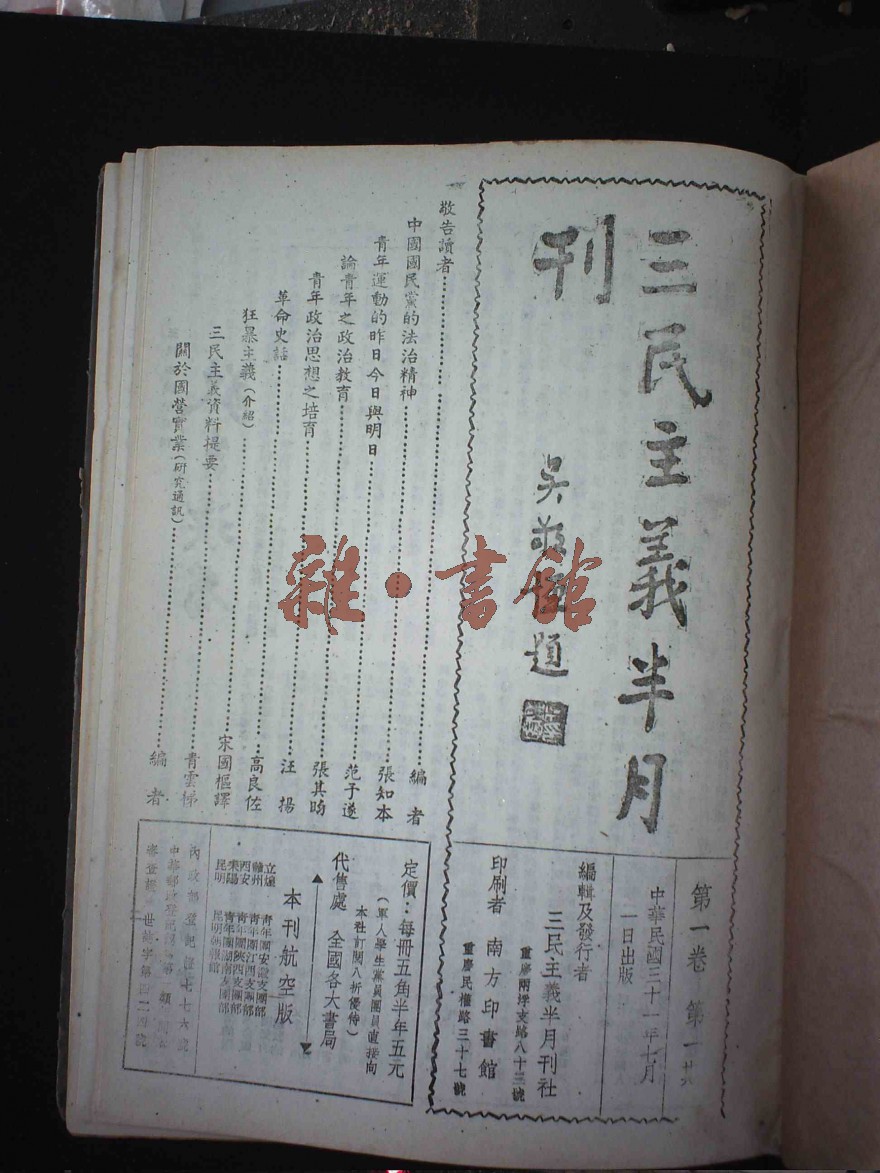 三民主義半月刊
吳敬恆題
第一卷 第一
中華民國三十一年七月
一日出版
編輯及發行者
三民主義半月刊社
重慶兩浮支路八十三號
印刷者 南方印書館
重慶民權路三十七號
敬告讀者 編者
中國國民黨的法治精神 張知本
青年運動的昨日今日與明日 范予遂
論青年之政治教育 張其昀
青年政治思想之培育 汪揚
革命史話 高良佐
狂暴主義(介紹) 宋國樞譯
三民主義資料提要 青雲梯
關於國營實業(研究通訊) 編者
定價:每冊五角半年五元
(軍人學生黨員團員直接向
本社訂閱八折優待)
代售處 全國各大書局
本刊航空版
立煌 青年團安徽支團部
贛州 青年團江西支團部
西安 青年團陝西支團部
耒陽 青年團湖南支團部
昆明
內政部登記證
雜·書館